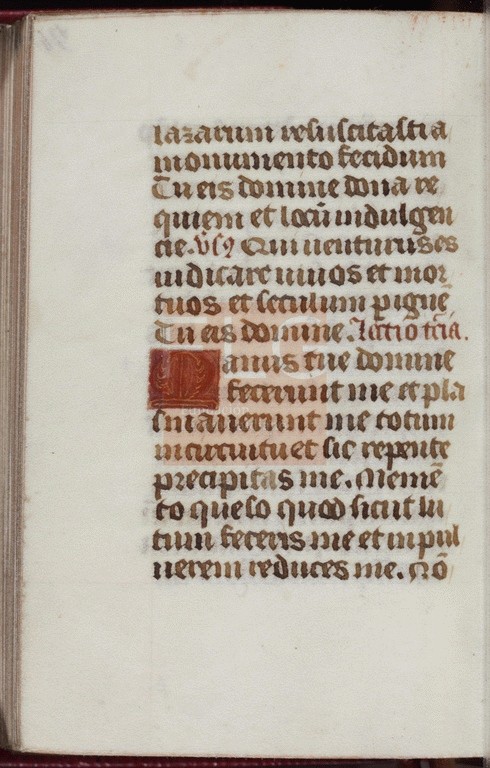 lazarum resuscitasti a
monumento fecidum
Tu eis domine dona re
quiem et locū indulgen
cie. Vsꝫ Qui uenturus es
iudicare uiuos et mor
tuos et seculum p igne
Tu eis domine. Lectio tcīa.
Manus tue domine
fecerunt me et pla
smauerunt me totum
in circuitu et sic repente
precipitas me. Memē
to queso quod sicut lu
tum feceris me et in pul
uerem reduces me. Nō